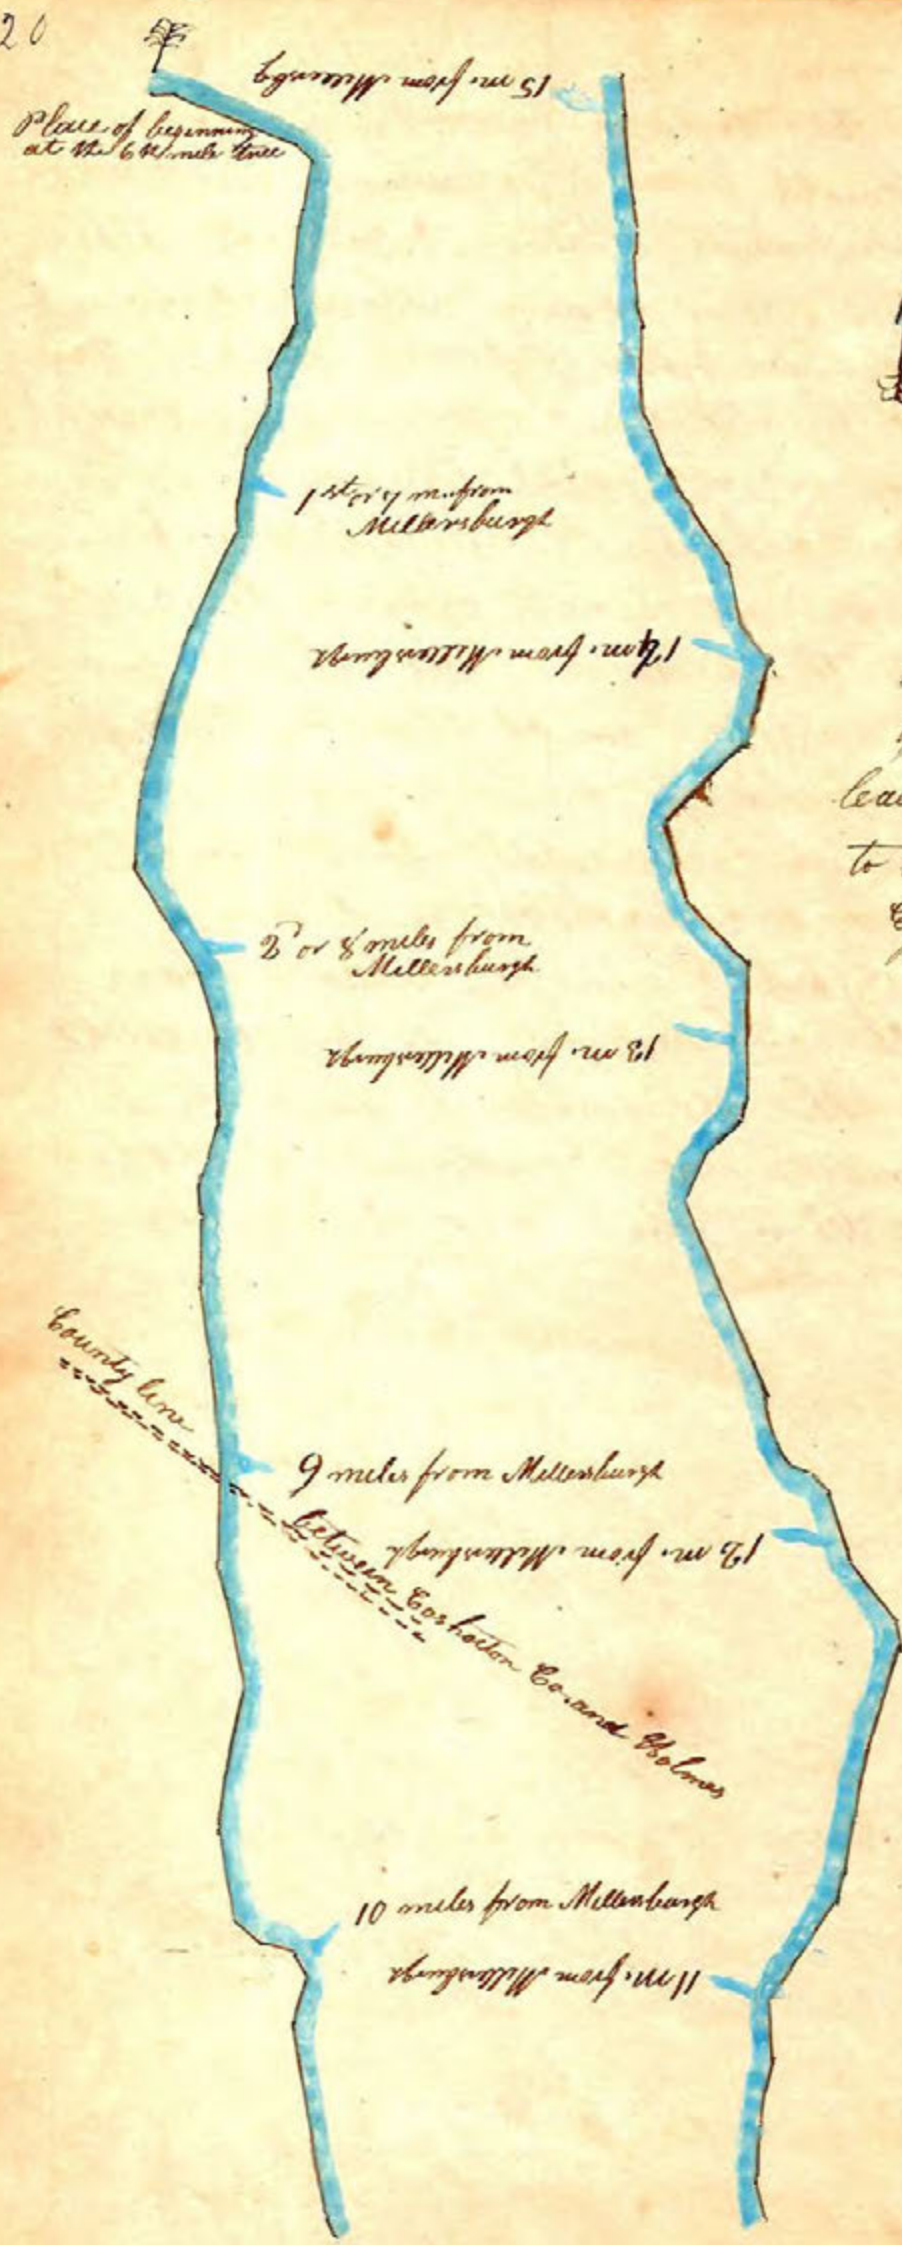 20
Place of beginning
at the 6th mile tree
15 m. from Millersbg
1st or 7 m. from
Millersburgh
14 m. from Millersburgh
2 or 8 miles from
Millersburgh
13 m. from Millersburgh
County line
9 miles from Millersburgh
12 m. from Millersburgh
between Coshocton Co. and Holmes
10 miles from Millersburgh
11 m. from Millersburgh
to